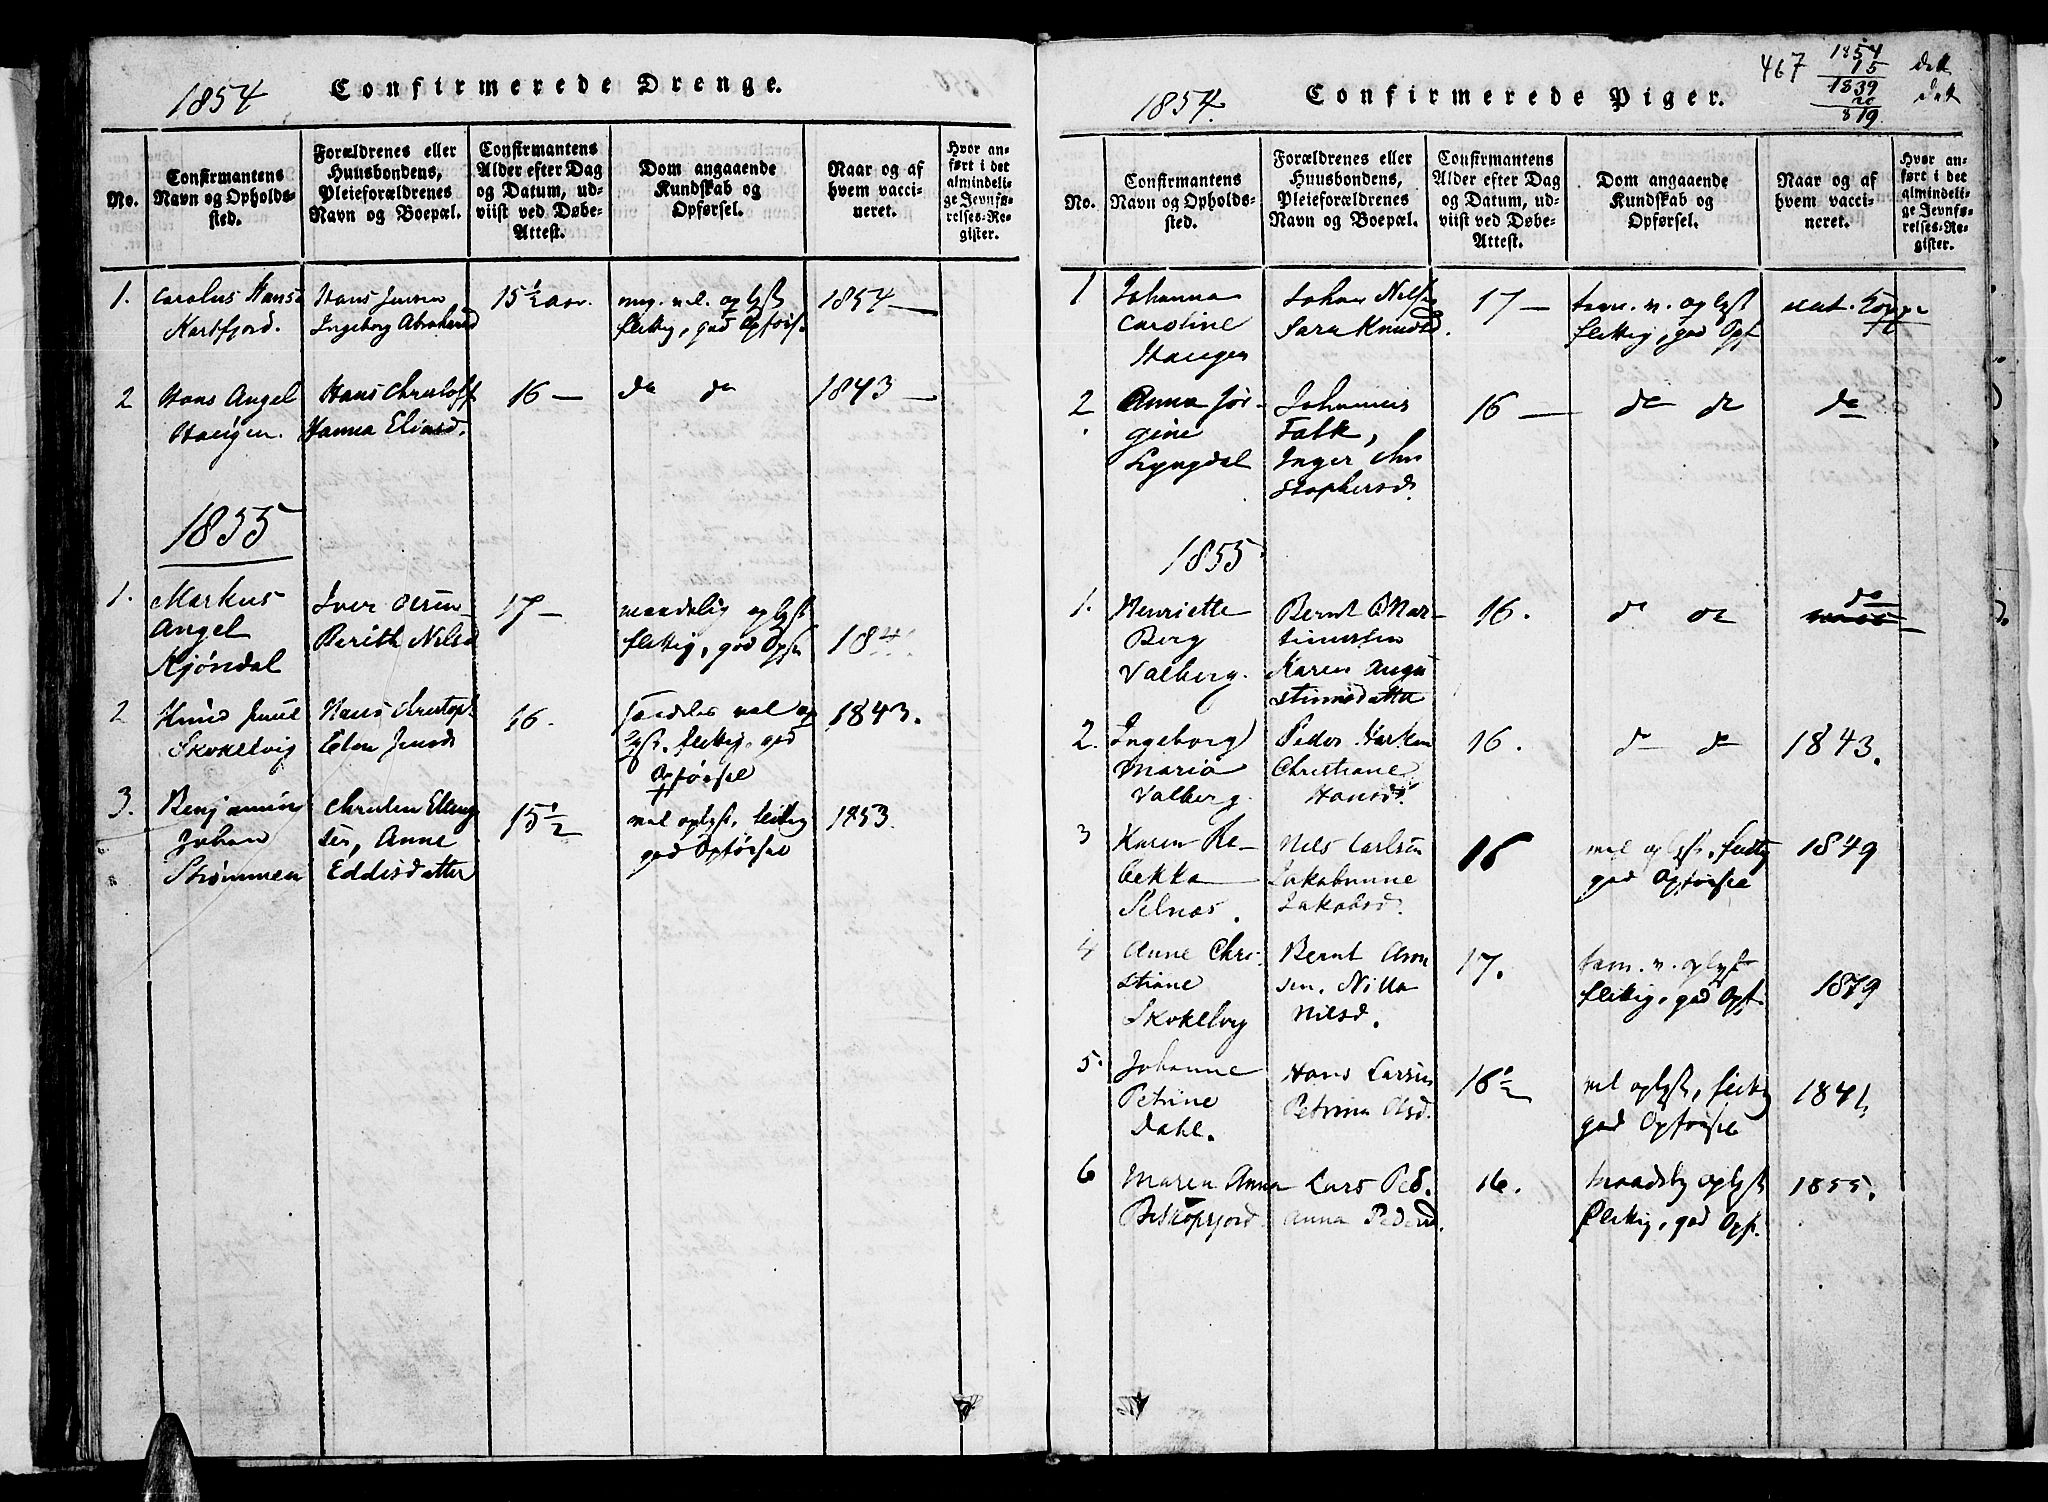 1854
Confirmerede Drenge.
No.
Confirmantens
Navn og Opholds-
sted.
Forældrenes eller
Huusbondens,
Pleieforældrenes
Navn og Boepæl.
Confirmantens
Alder efter Dag
og Datum, ud-
viist ved Døbe-
Attest.
Dom angaaende
Kundskab og
Opførsel.
Naar og af
hvem vacci-
neret.
Hvor an-
ført i det
almindeli-
ge Jevnfø-
relses-Re-
gister.
1.
Carolus Hans
Kartfjord.
Hans Jensen
Ingeborg
15½ aar.
meg. vel. oplyst
flittig, god Opførs.
1854 —
2
Hans Angel
Haugen.
Hans Christoff
Hanna Eliasd.
16 —
do do
1843 —
1855
1.
Markus
Angel
Kjøndal
Iver Olsen
Berith Nilsd
17 —
maadelig oplyst
flittig, god Opfør
184
2
Knud Juul
Skokelvig
Hans Christoph
Elen Jensd
16.
vel op
lyst. flittig, god
Opførsel
1843.
3.
Benjamin
Johan
Strømmen
Christen Elling
sen, Anne
Eddisdatter
15½
vel oplyst, flittig
god Opførsel
1853.
1854.
Confirmerede Piger.
467
1854
15
1839
20
819.
dat
dat
No.
Confirmantens
Navn og Opholds-
sted.
Forældrenes eller
Huusbondens,
Pleieforældrenes
Navn og Boepæl.
Confirmantens
Alder efter Dag
og Datum, ud-
viist ved Døbe-
Attest.
Dom angaaende
Kundskab og
Opførsel.
Naar og af
hvem vacci-
neret.
Hvor an-
ført i det
almindeli-
ge Jevnfø-
relses-Re-
gister.
1
Johanna
Caroline
Haugen
Johan Nilsen
Sara Knudsd.
17 —
tem. v. oplyst
flittig, god Opf
nat. Koppe
2.
Anna Jør-
gine
Lyngdal
Johannes
Falk,
Inger Chri
stophersd.
16 —
do do
do
1855
1.
Henriette
Berg
Valberg.
Bernt Mar-
tinussen
Karen Augu
stinusdatter
16.
do do
do
2.
Ingeborg
Maria
Valberg.
Peder
Christiane
Hansd.
16.
do do
1843.
3
Karen Re-
bekka
Selnæs.
Nils Carlsen
Jakobsd.
16
vel oplyst, flittig
god Opførsel
1849
4
Anne Chri-
stiane
Skokelvig
Bernt Aron
sen. Nilla
Nilsd.
17.
tem. v. oplyst
flittig, god Opf.
1849
5.
Johanne
Petrine
Dahl.
Hans Larsen
Petrina Olsd.
16½
vel oplyst, flittig
god Opførsel
1841
6
Maren Anna
Biskopsfjord.
Lars Ped.
Anna Pedersd.
16.
maadelig oplyst
flittig, god Opf.
1855.